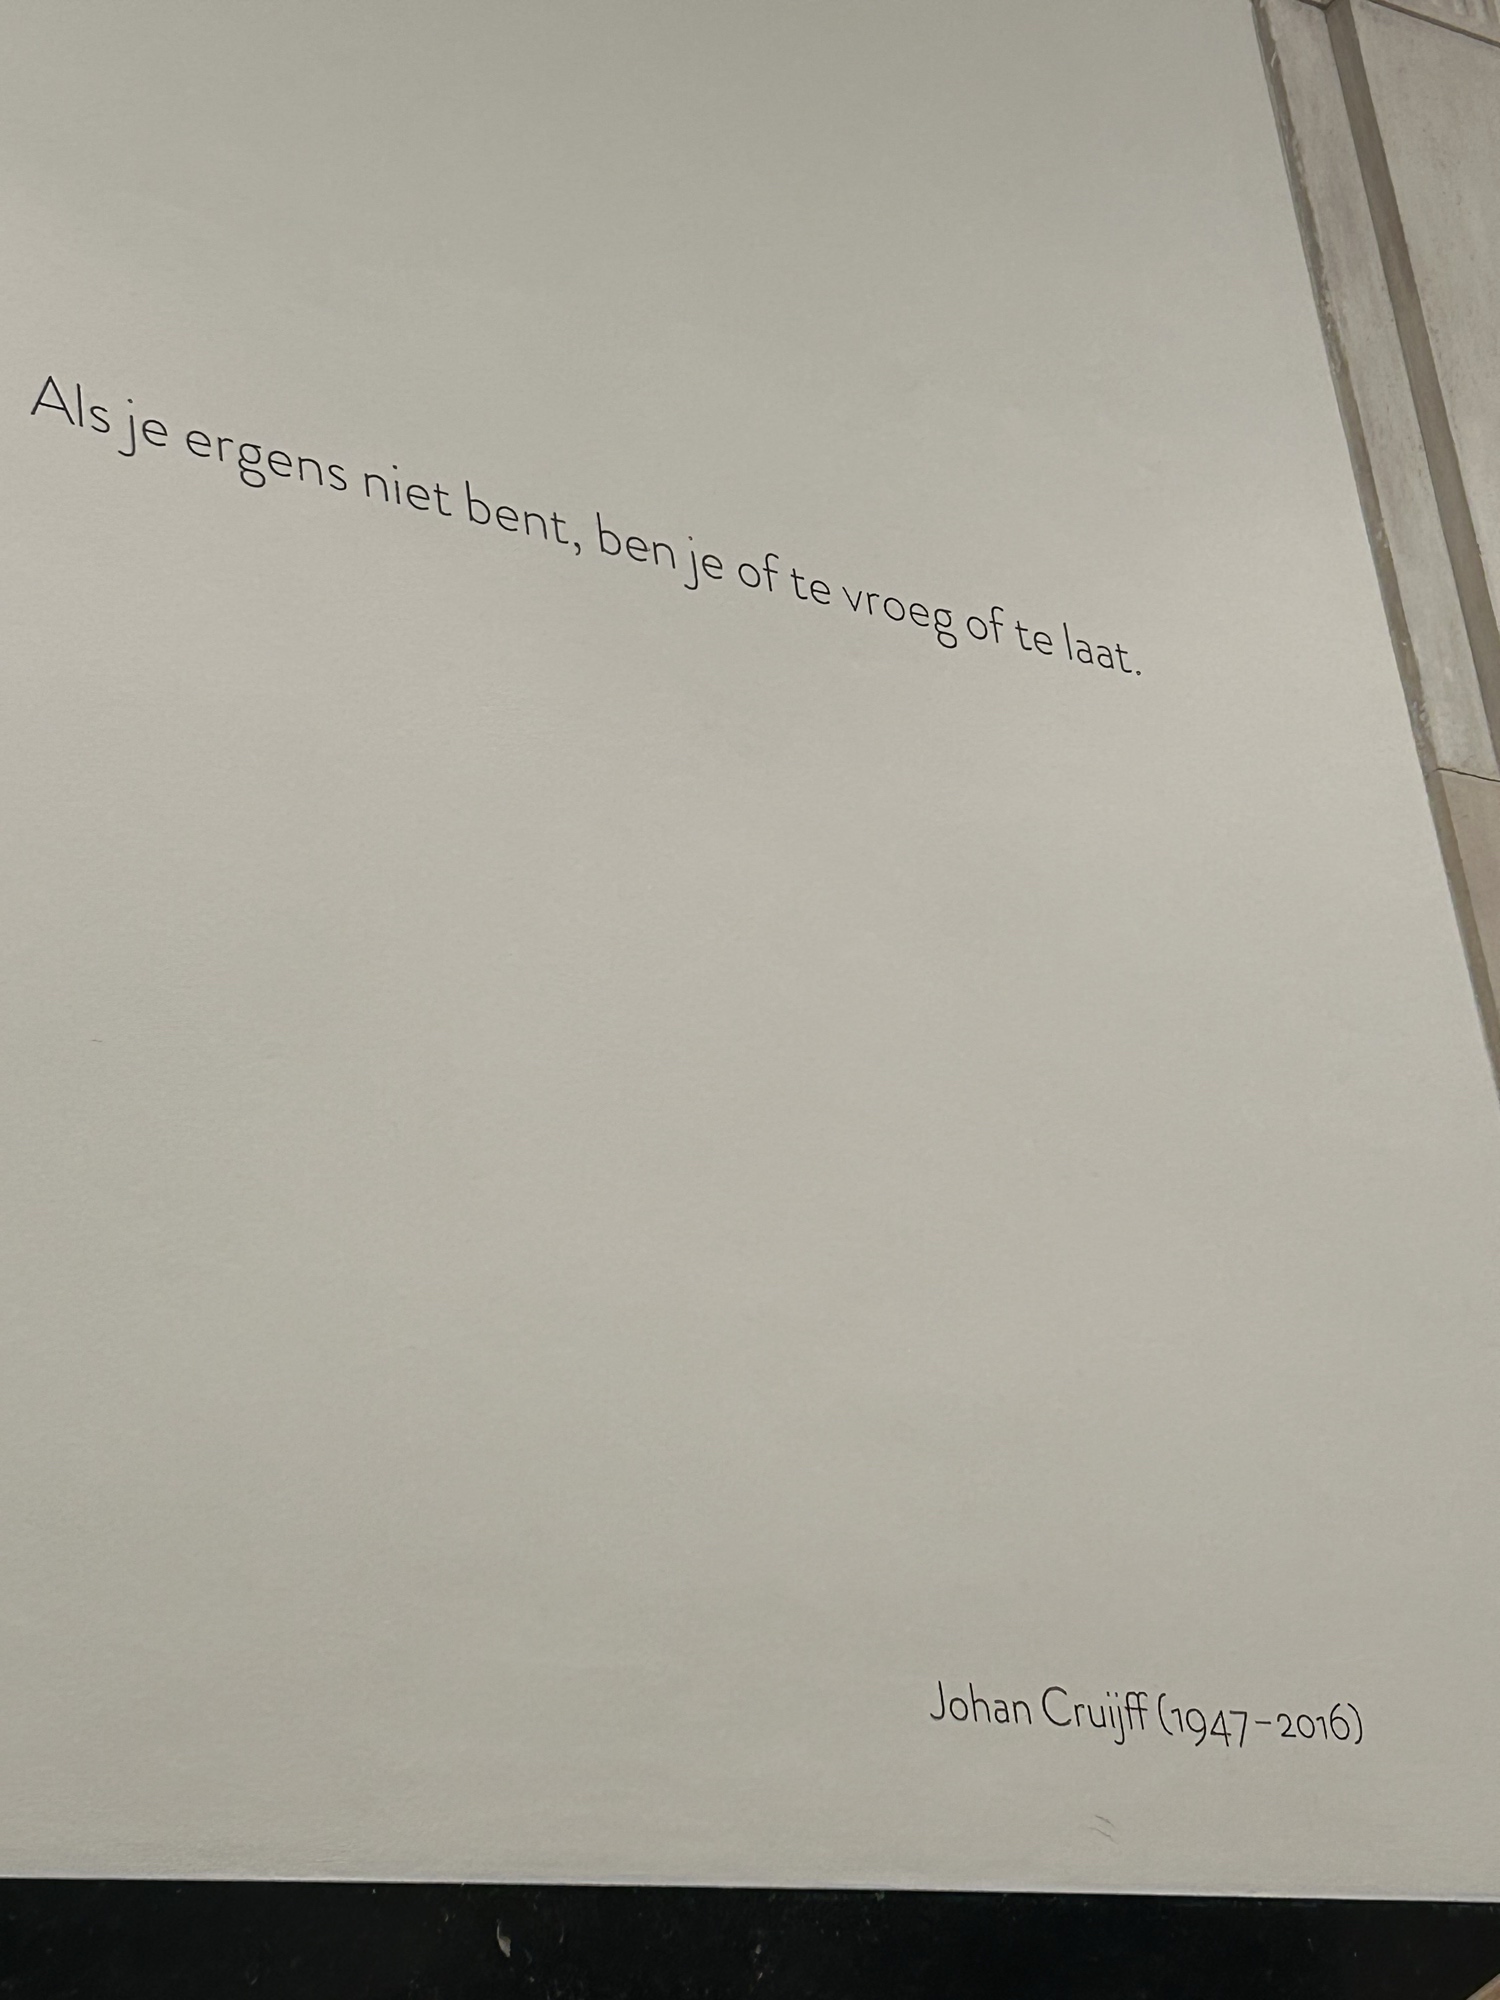 Als je ergens niet bent, ben je of te vroeg of te laat.
Johan Cruijff (1947–2016)